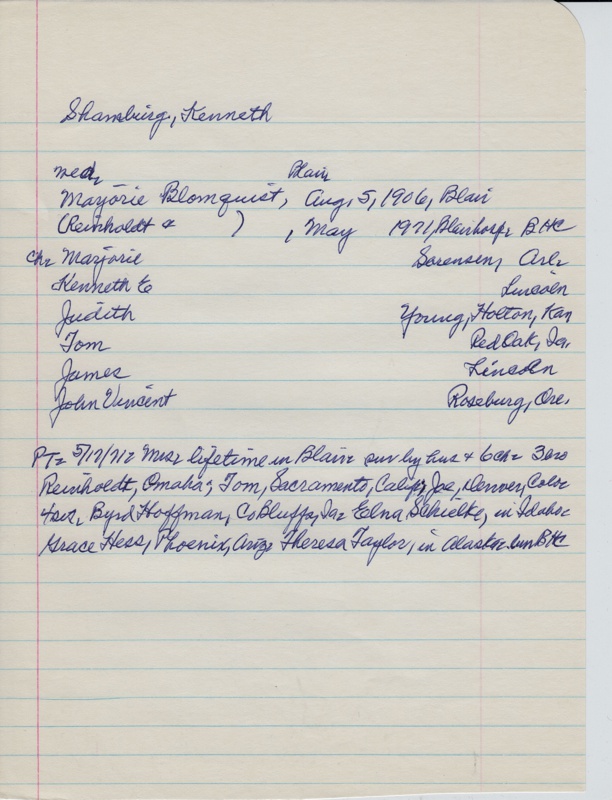 Shamburg, Kenneth
med, Blair
Marjorie Blomquist, Aug, 5, 1906, Blair
(Reinholdt & ), May 1971, Blairhosp, BHC
Ch= Marjorie Sorensen, Arl=
Kenneth E Lincoln
Judith Young, Holton, Kan
Tom Red Oak, Ia.
James Lincoln
John Vincent Roseburg, Ore.
PT= 5/17/71= Mrs= lifetime in Blair= sur by hus & 6 ch= 3 bro
Reinholdt, Omaha; Tom, Sacramento, Calif; Joe, Denver, Colo=
4 sis, Byrd Hoffman, CoBluffs, Ia= Edna Schielke, in Idaho=
Grace Hess, Phoenix, Ariz= Theresa Taylor, in Alaska= bur BHC